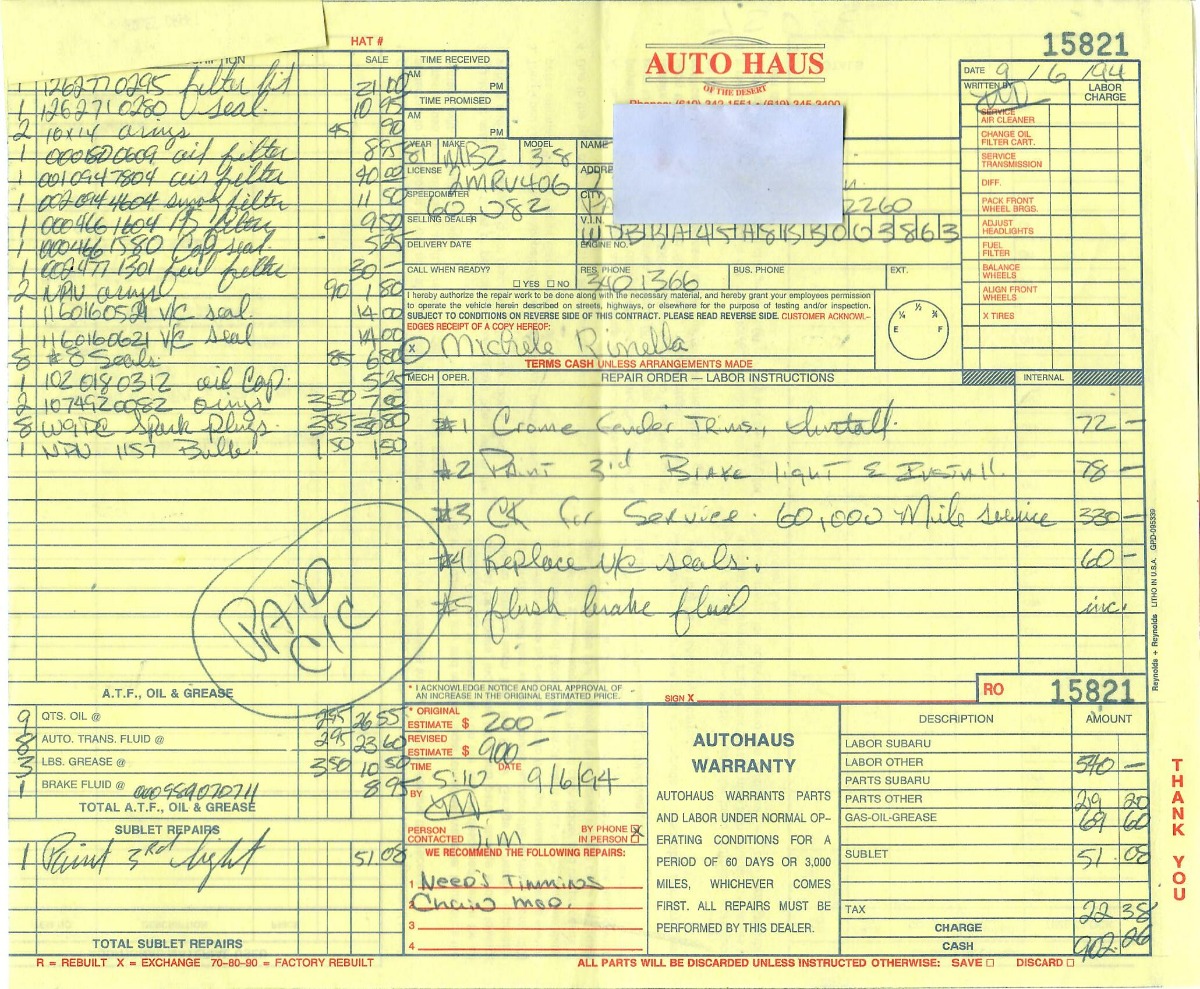 HAT #
15821
SALE
1 1262770295 filter kit 21.00
1 1262710280 seal 10 95
2 10x14 orings 45 90
1 0001800609 oil filter 8 95
1 0010947804 air filter 40.00
1 0020944604 smog filter 11 80
1 000466 1604 PS filter 9 50
1 000466 1580 Cap seal 5 25
1 002 477 1301 fuel filter 30 –
2 NPN orings 90 1 80
1 1160160521 V/C seal 14.00
1 1160160621 V/C seal 14.00
8 #8 Seals 85 6 80
1 102 018 0312 oil Cap. 5 25
2 1074920082 orings 3 50 7 00
8 W9DC Spark Plugs 3 85 30 80
1 NPN 1157 Bulb 1 50 1 50
PAID
C/C
A.T.F., OIL & GREASE
9 QTS. OIL @ 2 95 26 55
8 AUTO. TRANS. FLUID @ 2 95 23 60
3 LBS. GREASE @ 3 50 10 50
1 BRAKE FLUID @ 000989070711 8 95
TOTAL A.T.F., OIL & GREASE
SUBLET REPAIRS
1 Paint 3rd light 51.08
TOTAL SUBLET REPAIRS
R = REBUILT X = EXCHANGE 70-80-90 = FACTORY REBUILT
TIME RECEIVED
AM
PM
TIME PROMISED
AM
PM
AUTO HAUS
OF THE DESERT
Phones: (619) 342-1551 • (619) 345-3400
DATE 9/6/94
WRITTEN BY
LABOR CHARGE
SERVICE AIR CLEANER
CHANGE OIL FILTER CART.
SERVICE TRANSMISSION
DIFF.
PACK FRONT WHEEL BRGS.
ADJUST HEADLIGHTS
FUEL FILTER
BALANCE WHEELS
ALIGN FRONT WHEELS
X TIRES
YEAR 81 MAKE MBZ MODEL 3.8 NAME
LICENSE 2MRV406
SPEEDOMETER 60 082 CITY 2260
SELLING DEALER V.I.N. WDBBA45A8BB003863
DELIVERY DATE ENGINE NO.
CALL WHEN READY? YES NO RES. PHONE 340 1366 BUS. PHONE EXT.
I hereby authorize the repair work to be done along with the necessary material, and hereby grant your employees permission
to operate the vehicle herein described on streets, highways, or elsewhere for the purpose of testing and/or inspection.
SUBJECT TO CONDITIONS ON REVERSE SIDE OF THIS CONTRACT. PLEASE READ REVERSE SIDE. CUSTOMER ACKNOWL-
EDGES RECEIPT OF A COPY HEREOF:
X Michele Rinella
TERMS CASH UNLESS ARRANGEMENTS MADE
¼ ½ ¾
E F
MECH OPER. REPAIR ORDER — LABOR INSTRUCTIONS INTERNAL
#1 Crome fender Trims, Install. 72 –
#2 Paint 3rd Brake light & Install 78 –
#3 CK for Service. 60,000 Mile service 330 –
#4 Replace V/C seals. 60 –
#5 flush brake fluid inc.
* I ACKNOWLEDGE NOTICE AND ORAL APPROVAL OF
AN INCREASE IN THE ORIGINAL ESTIMATED PRICE.
SIGN X
RO 15821
* ORIGINAL ESTIMATE $ 200 –
REVISED ESTIMATE $ 900 –
TIME 5:10 DATE 9/6/94
BY
PERSON CONTACTED Jim BY PHONE X IN PERSON
WE RECOMMEND THE FOLLOWING REPAIRS:
1 Need's Timming
2 Chain
3
4
AUTOHAUS
WARRANTY
AUTOHAUS WARRANTS PARTS
AND LABOR UNDER NORMAL OP-
ERATING CONDITIONS FOR A
PERIOD OF 60 DAYS OR 3,000
MILES, WHICHEVER COMES
FIRST. ALL REPAIRS MUST BE
PERFORMED BY THIS DEALER.
DESCRIPTION AMOUNT
LABOR SUBARU
LABOR OTHER 540 –
PARTS SUBARU
PARTS OTHER 219 20
GAS-OIL-GREASE 69 60
SUBLET 51.08
TAX 22 38
CHARGE
CASH 902.26
ALL PARTS WILL BE DISCARDED UNLESS INSTRUCTED OTHERWISE: SAVE DISCARD
THANK YOU
Reynolds + Reynolds LITHO IN U.S.A. GPD-095339